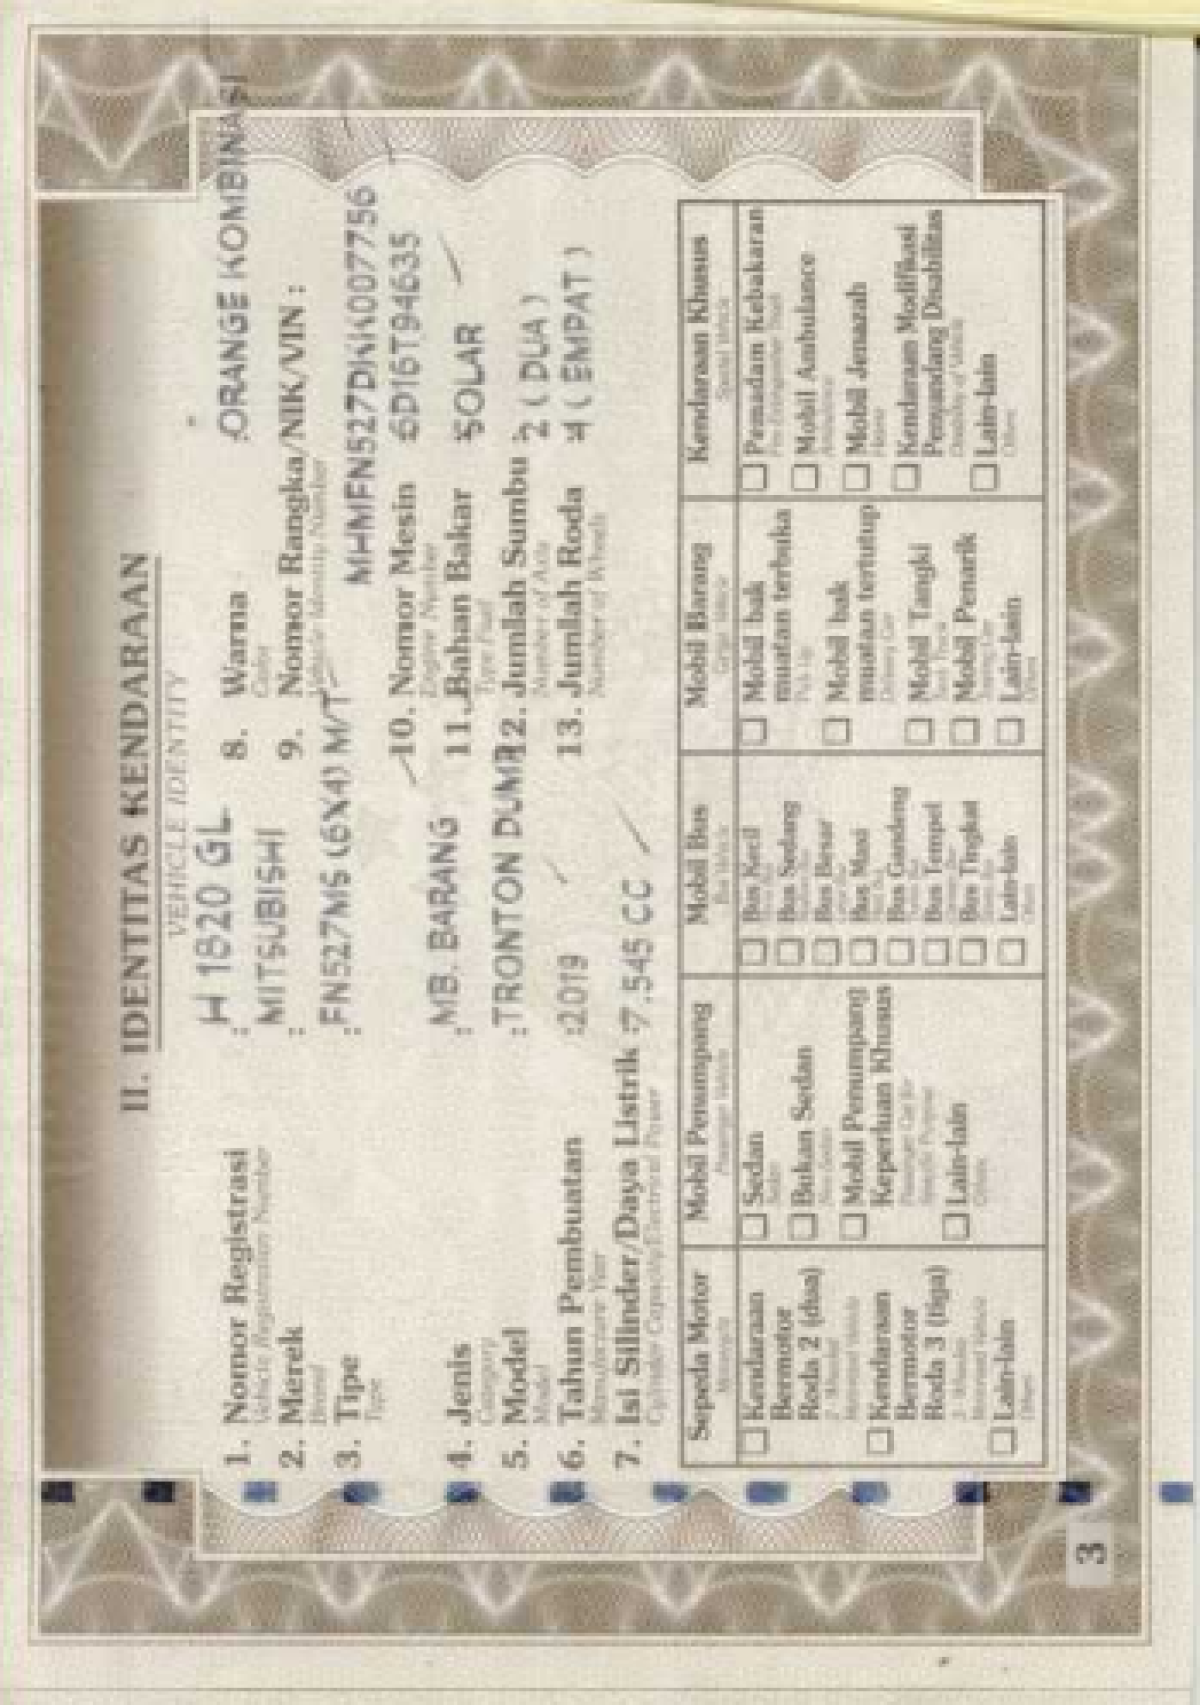 II. IDENTITAS KENDARAAN
VEHICLE IDENTITY
1. Nomor Registrasi : H 1820 GL
Vehicle Registration Number
2. Merek : MITSUBISHI
Brand
3. Tipe : FN527MS (6X4) M/T
Type
4. Jenis : MB. BARANG
Category
5. Model : TRONTON DUMP
Model
6. Tahun Pembuatan : 2019
Manufacture Year
7. Isi Silinder/Daya Listrik : 7.545 CC
Cylinder Capacity/Electrical Power
8. Warna : ORANGE KOMBINASI
Color
9. Nomor Rangka/NIK/VIN :
Vehicle Identity Number
10. Nomor Mesin : 6D16T94635
Engine Number
11. Bahan Bakar : SOLAR
Type Fuel
12. Jumlah Sumbu : 2 ( DUA )
Number of Axle
13. Jumlah Roda : 4 ( EMPAT )
Number of Wheels
Sepeda Motor
Kendaraan
Bermotor
Roda 2 (dua)
Kendaraan
Bermotor
Roda 3 (tiga)
Lain-lain
Others
Mobil Penumpang
Passenger Vehicle
Sedan
Sedan
Bukan Sedan
Non Sedan
Mobil Penumpang
Keperluan Khusus
Lain-lain
Others
Mobil Bus
Bus Vehicle
Bus Kecil
Bus Sedang
Bus Besar
Bus Maxi
Bus Gandeng
Bus Tempel
Bus Tingkat
Lain-lain
Others
Mobil Barang
Mobil bak
muatan terbuka
Pick Up
Mobil bak
muatan tertutup
Delivery Car
Mobil Tangki
Mobil Penarik
Lain-lain
Others
Kendaraan Khusus
Special Vehicle
Pemadam Kebakaran
Mobil Ambulance
Ambulance
Mobil Jenazah
Hearse
Kendaraan Modifikasi
Penyandang Disabilitas
Disability of Vehicle
Lain-lain
Others
3